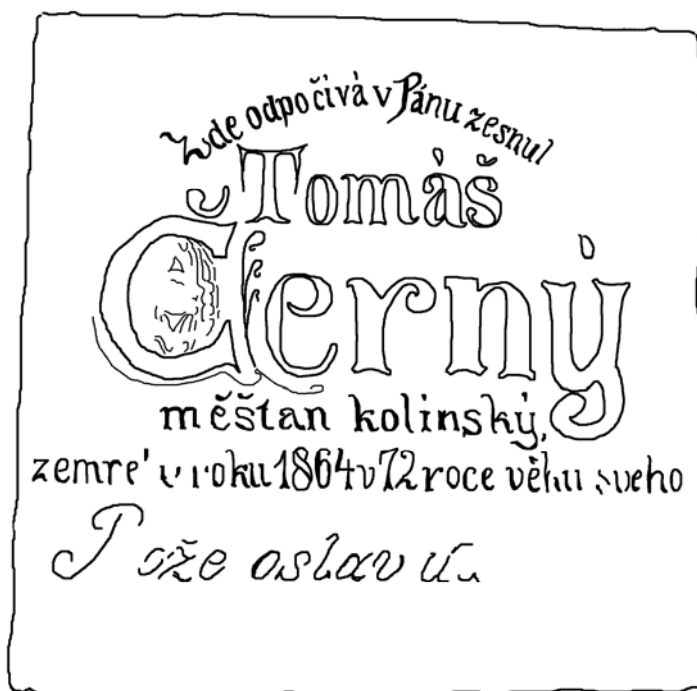 Zde odpočívá v Pánu zesnul
Tomáš
Černý
měštan kolinský,
zemre' v roku 1864 v 72 roce věku sveho
ože oslav